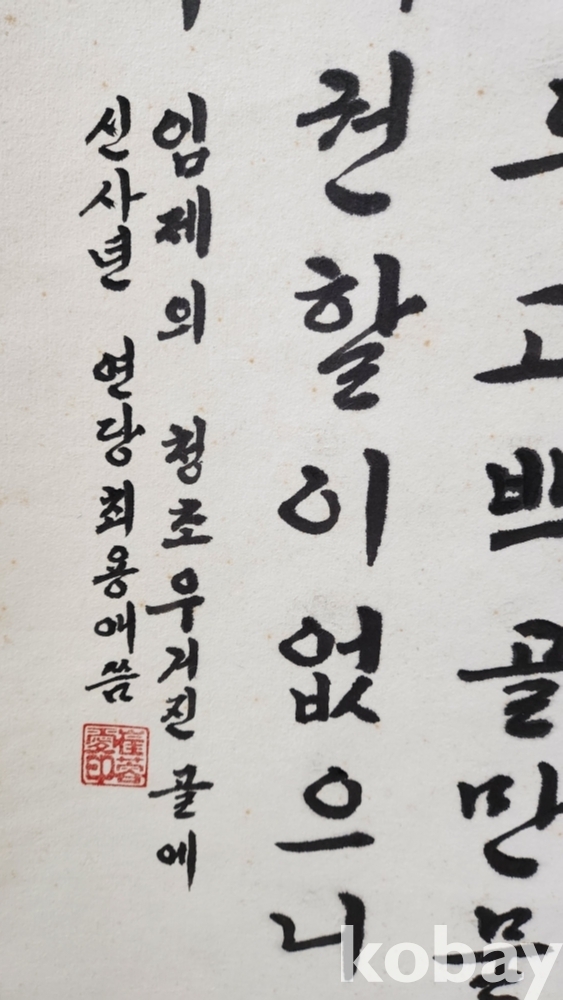 고백골만묻
권할이없으니
임제의 청초우거진골에
신사년 연당최용애씀
崔蓉
愛印
kobay